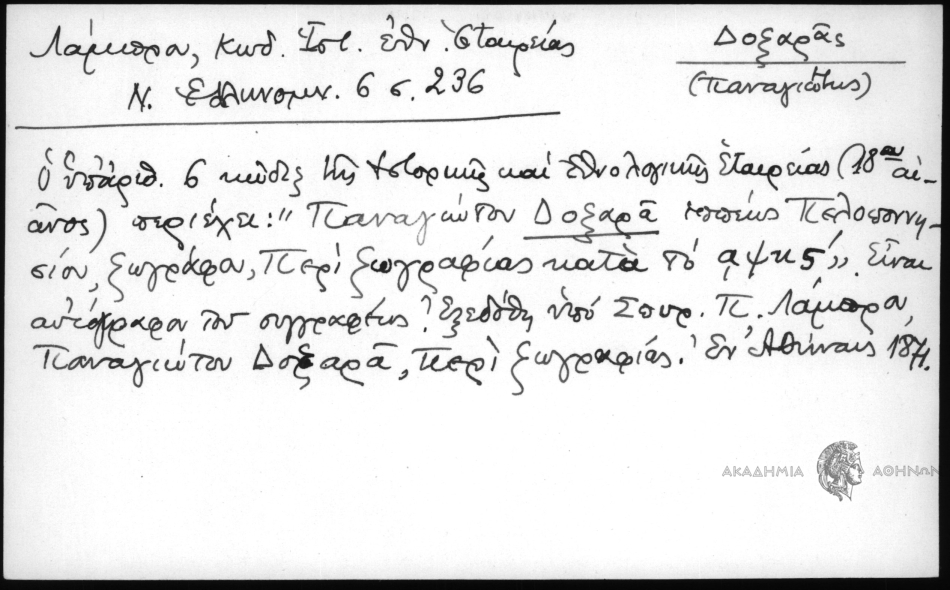 Λάμπρου, Κωδ. Ἱστ. ἐθν. Ἑταιρείας
Δοξαρᾶς
(Παναγιώτης)
Ν. Ἑλληνομν. 6 σ. 236
Ὁ ὑπ' ἀριθ. 6 κώδιξ τῆς Ἱστορικῆς καὶ Ἐθνολογικῆς Ἑταιρείας (18ου αἰ-
ῶνος) περιέχει: "Παναγιώτου Δοξαρᾶ ἱππέως Πελοποννη-
σίου, ζωγράφου, Περὶ ζωγραφίας κατὰ τὸ αψκς΄,, Εἶναι
αὐτόγραφον τοῦ συγγραφέως. Ἐξεδόθη ὑπὸ Σπυρ. Π. Λάμπρου,
Παναγιώτου Δοξαρᾶ, Περὶ ζωγραφίας. Ἐν Ἀθήναις 1871.
ΑΚΑΔΗΜΙΑ ΑΘΗΝΩΝ